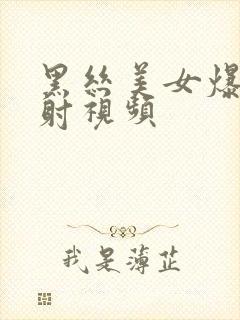 黑丝美女爆
射視頻
我是薄芷